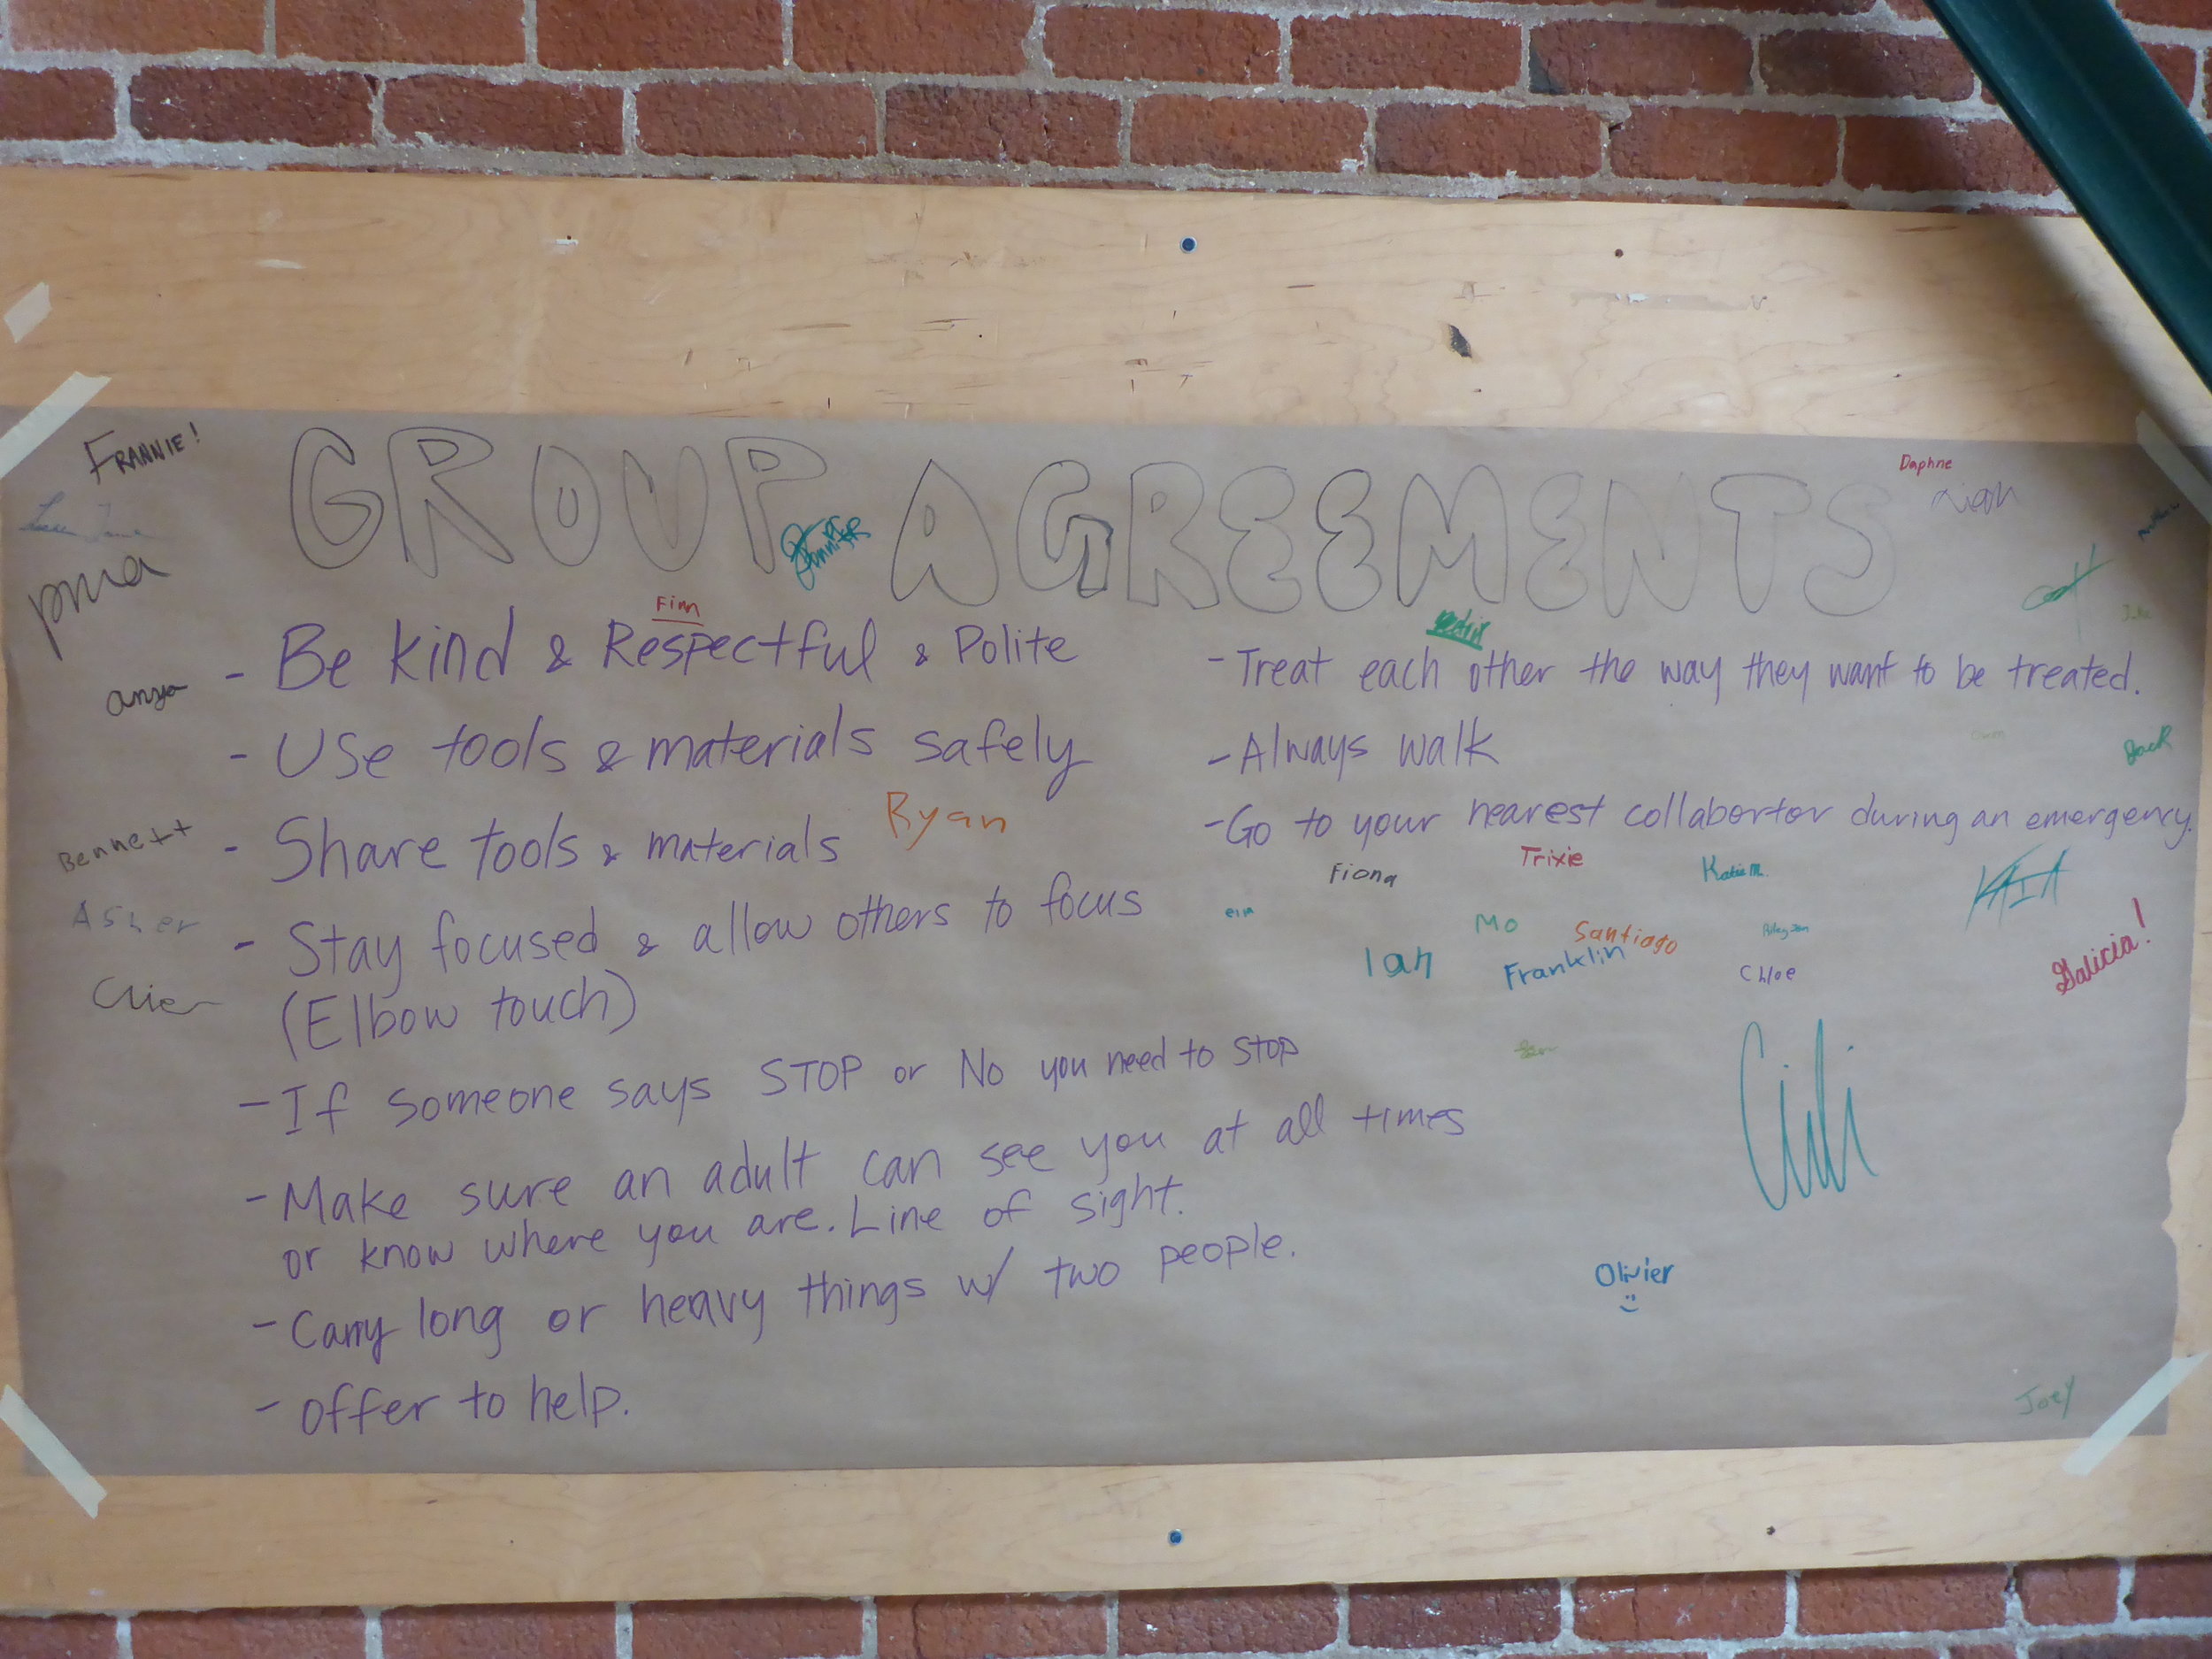 FRANNIE!
GROUP AGREEMENTS
Daphne
pma
Jennifer
Finn
- Be kind & Respectful & Polite
anya
- Use tools & materials safely
- Share tools & materials
Ryan
Bennett
- Stay focused & allow others to focus
(Elbow touch)
Asher
- If someone says STOP or No you need to STOP
- Make sure an adult can see you at all times
or know where you are. Line of sight.
- Carry long or heavy things w/ two people.
- Offer to help.
- Treat each other the way they want to be treated.
- Always walk
Jack
- Go to your nearest collabortor during an emergency.
Fiona
Trixie
Katie M.
KAIA
Mo
Santiago
Ian
Franklin
Chloe
Galicia!
Olivier
Joey